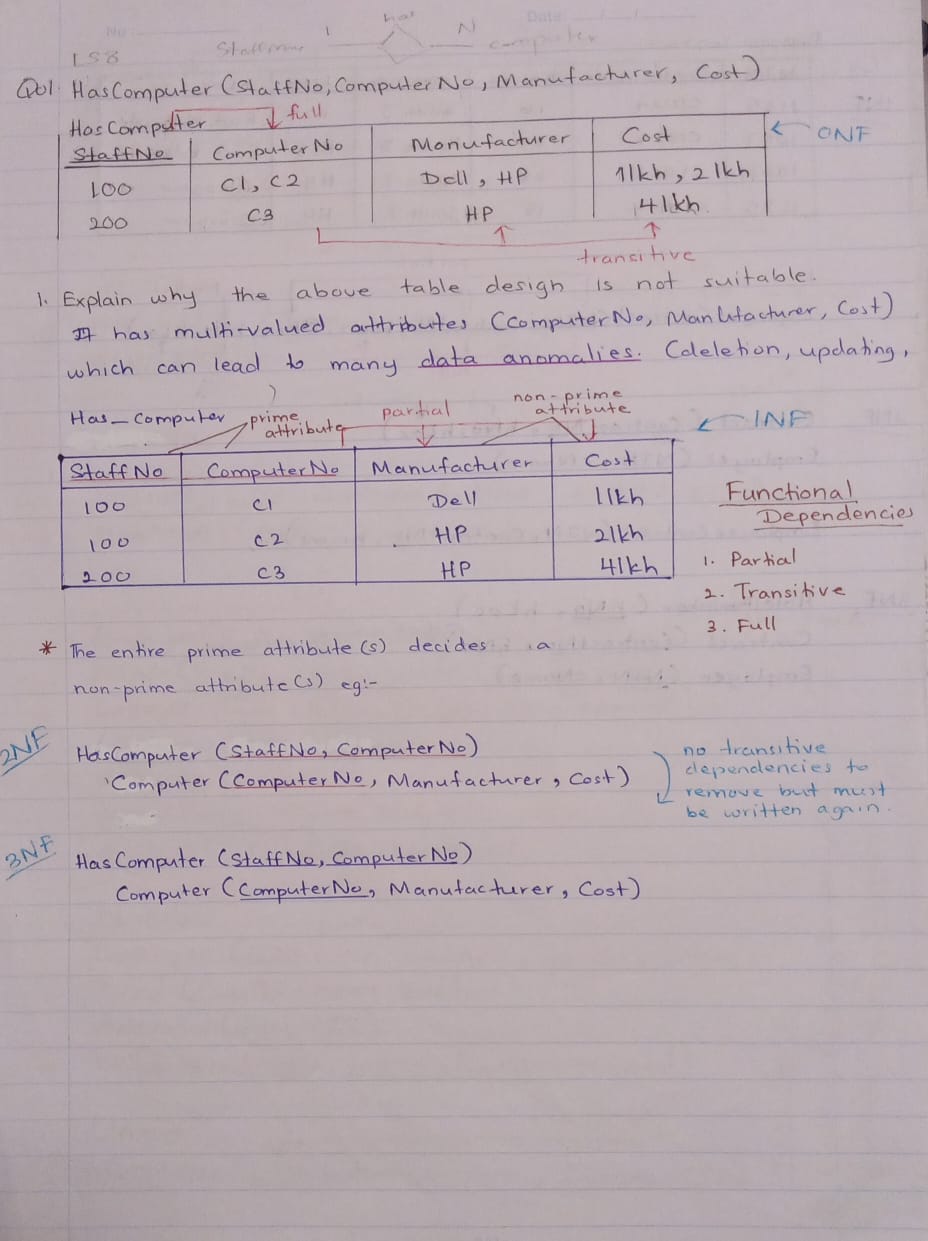 No
Date
has
1
N
computer
LS8
Q01. HasComputer (StaffNo, ComputerNo, Manufacturer, Cost)
HasComputer
full
StaffNo ComputerNo Manufacturer Cost
ONF
100 C1, C2 Dell, HP 1lkh, 2lkh
200 C3 HP 4lkh
transitive
1. Explain why the above table design is not suitable.
It has multi-valued attributes (ComputerNo, Manufacturer, Cost)
which can lead to many data anomalies. (deletion, updating,
)
Has_computer
prime attribute
partial
non-prime attribute
1NF
StaffNo ComputerNo Manufacturer Cost
100 C1 Dell 1lkh
100 C2 HP 2lkh
200 C3 HP 4lkh
Functional
Dependencies
1. Partial
2. Transitive
3. Full
* The entire prime attribute(s) decides a
non-prime attribute(s) eg:-
2NF
HasComputer (StaffNo, ComputerNo)
Computer (ComputerNo, Manufacturer, Cost)
no transitive
dependencies to
remove but must
be written again.
3NF
HasComputer (StaffNo, ComputerNo)
Computer (ComputerNo, Manufacturer, Cost)